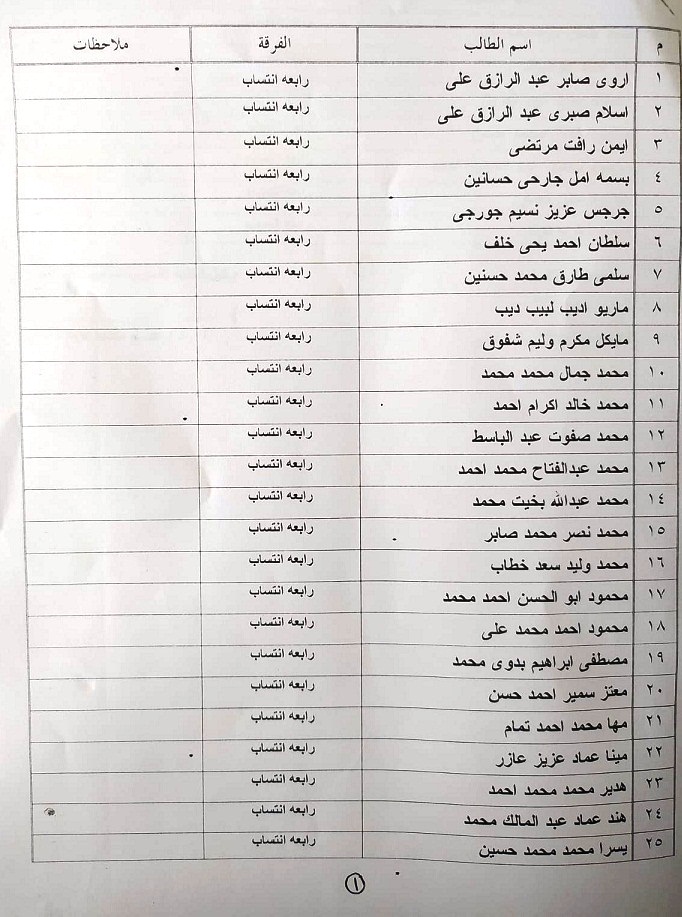 م اسم الطالب الفرقة ملاحظات
١ اروى صابر عبد الرازق على رابعه انتساب
٢ اسلام صبرى عبد الرازق على رابعه انتساب
٣ ايمن رافت مرتضى رابعه انتساب
٤ بسمه امل جارحى حسانين رابعه انتساب
٥ جرجس عزيز نسيم جورجى رابعه انتساب
٦ سلطان احمد يحى خلف رابعه انتساب
٧ سلمى طارق محمد حسنين رابعه انتساب
٨ ماريو اديب لبيب ديب رابعه انتساب
٩ مايكل مكرم وليم شفوق رابعه انتساب
١٠ محمد جمال محمد محمد رابعه انتساب
١١ محمد خالد اكرام احمد رابعه انتساب
١٢ محمد صفوت عبد الباسط رابعه انتساب
١٣ محمد عبدالفتاح محمد احمد رابعه انتساب
١٤ محمد عبدالله بخيت محمد رابعه انتساب
١٥ محمد نصر محمد صابر رابعه انتساب
١٦ محمد وليد سعد خطاب رابعه انتساب
١٧ محمود ابو الحسن احمد محمد رابعه انتساب
١٨ محمود احمد محمد على رابعه انتساب
١٩ مصطفى ابراهيم بدوى محمد رابعه انتساب
٢٠ معتز سمير احمد حسن رابعه انتساب
٢١ مها محمد احمد تمام رابعه انتساب
٢٢ مينا عماد عزيز عازر رابعه انتساب
٢٣ هدير محمد محمد احمد رابعه انتساب
٢٤ هند عماد عبد المالك محمد رابعه انتساب
٢٥ يسرا محمد محمد حسين رابعه انتساب
١